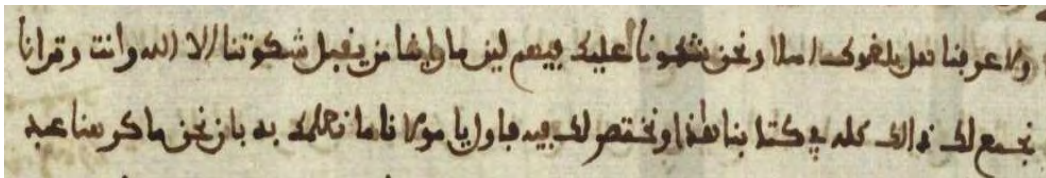 ولا عرفنا هل بلغوك املا ونحن شكونا عليك بيهم لين ما راينا من يقبل شكوتنا الا الله وانت وقرانا
نجمع لك ذالك كله في كتابنا هذا ونختصر لك فيه فاول يا مولانا ما نعلمك به بان نحن ما كرهنا عبد